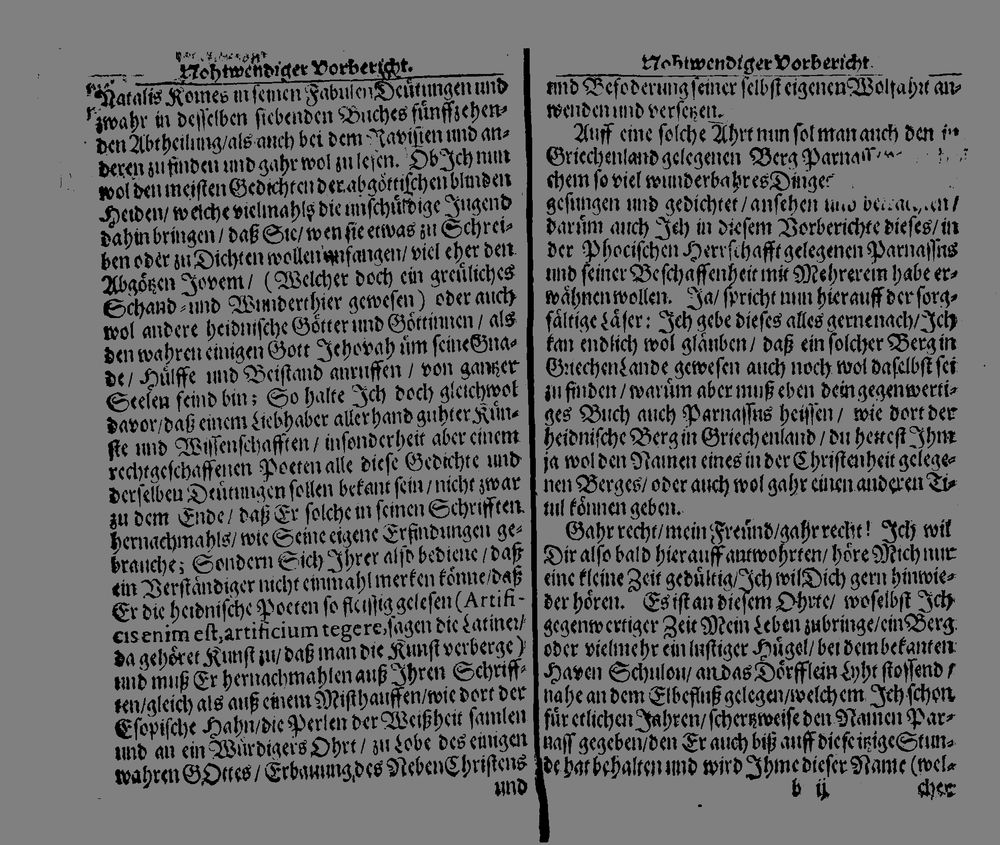 Nohtwendiger Vorbericht.
Natalis Komes in seinen Fabulen Deütungen und
zwahr in desselben siebenden Buches fünffzehen-
den Abtheilung/als auch bei dem Ravisien und an-
deren zu finden und gahr wol zu lesen. Ob Ich nun
wol den meisten Gedichten der abgöttischen blinden
Heiden/ welche vielmahls die unschüldige Jugend
dahin bringen/ daß Sie/ wen sie etwas zu Schrei-
ben oder zu Dichten wollen anfangen/ viel eher den
Abgötzen Jovem/ (Welcher doch ein greuliches
Schand- und Wunderthier gewesen) oder auch
wol andere heidnische Götter und Göttinnen/ als
den wahren einigen Gott Jehovah üm seine Gna-
de/ Hülffe und Beistand anruffen/ von gantzer
Seelen feind bin; So halte Ich doch gleichwol
davor/daß einem Liebhaber allerhand guhter Kün-
ste und Wissenschafften/ insonderheit aber einem
rechtgeschaffenen Poeten alle diese Gedichte und
derselben Deütungen sollen bekant sein/nicht zwar
zu dem Ende/ daß Er solche in seinen Schrifften
hernachmahls/ wie Seine eigene Erfindungen ge-
brauche; Sondern Sich Ihrer also bediene/ daß
ein Verständiger nicht einmahl merken könne/daß
Er die heidnische Poeten so fleissig gelesen (Artifi-
cis enim est, artificium tegere, sagen die Latiner/
da gehöret Kunst zu/ daß man die Kunst verberge)
und muß Er hernachmahlen auß Ihren Schriff-
ten/gleich als auß einem Misthauffen/wie dort der
Esopische Hahn/die Perlen der Weißheit samlen
und an ein Würdigers Ohrt/ zu Lobe des einigen
wahren GOttes/ Erbauung des NebenChristens
und
Nohtwendiger Vorbericht.
und Befoderung seiner selbst eigenen Wolfahrt an-
wenden und versetzen.
Auff eine solche Ahrt nun sol man auch den in
Griechenland gelegenen Berg
chem so viel wunderbahres Dinges
gesungen und gedichtet/ ansehen und betrachten/
darüm auch Ich in diesem Vorberichte dieses/ in
der Phocischen Herrschafft gelegenen Parnassus
und seiner Beschaffenheit mit Mehrerem habe er-
wähnen wollen. Ja/ spricht nun hierauff der sorg-
fältige Läser: Ich gebe dieses alles gerne nach/Ich
kan endlich wol gläuben/ daß ein solcher Berg in
GriechenLande gewesen auch noch wol daselbst sei
zu finden/ warüm aber muß eben dein gegenwerti-
ges Buch auch Parnassus heissen/ wie dort der
heidnische Berg in Griechenland/ du hettest Ihm
ja wol den Namen eines in der Christenheit gelege-
nen Berges/ oder auch wol gahr einen anderen Ti-
tul können geben.
Gahr recht/ mein Freünd/gahr recht! Ich wil
Dir also bald hierauff antwohrten/ höre Mich nur
eine kleine Zeit gedültig/Ich wil Dich gern hinwie-
der hören. Es ist an diesem Ohrte/ woselbst Ich
gegenwertiger Zeit Mein Leben zubringe/ein Berg
oder vielmehr ein lustiger Hügel/ bei dem bekanten
Haven Schulou/ an das Dörfflein Lyht stossend/
nahe an dem Elbefluß gelegen/welchem Ich schon
für etlichen Jahren/ schertzweise den Namen Par-
nass gegeben/den Er auch biß auff diese itzige Stun-
de hat behalten und wird Ihme dieser Name (wel-
b ij
cher